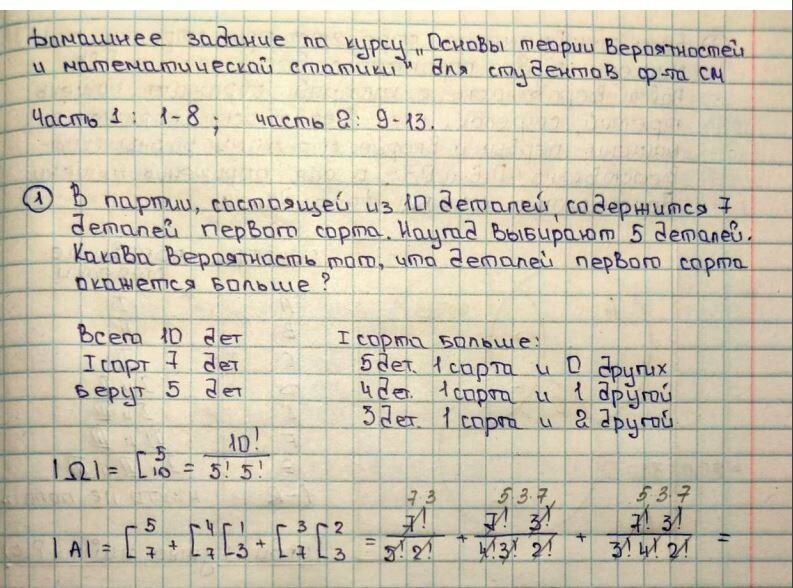 Домашнее задание по курсу „Основы теории вероятностей
и математической статики" для студентов ф-та СМ
Часть 1: 1-8; часть 2: 9-13.
① В партии, состоящей из 10 деталей, содержится 7
деталей первого сорта. Наугад выбирают 5 деталей.
Какова вероятность того, что деталей первого сорта
окажется больше?
Всего 10 дет
I сорт 7 дет
Берут 5 дет
I сорта больше:
5 дет. 1 сорта и 0 других
4 дет. 1 сорта и 1 другой
3 дет. 1 сорта и 2 другой
|Ω| = C₁₀⁵ = 10! / (5! 5!)
7·3 5·3·7 5·3·7
|A| = C₇⁵ + C₇⁴ C₃¹ + C₇³ C₃² = 7! / (5! 2!) + 7! 3! / (4! 3! 2!) + 7! 3! / (3! 4! 2!) =